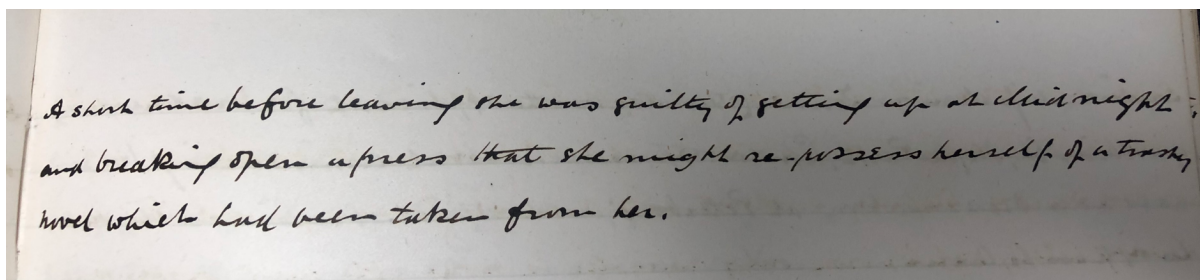 A short time before leaving she was guilty of getting up at Midnight,
and breaking open a press that she might re-possess herself of a trashy
novel which had been taken from her.